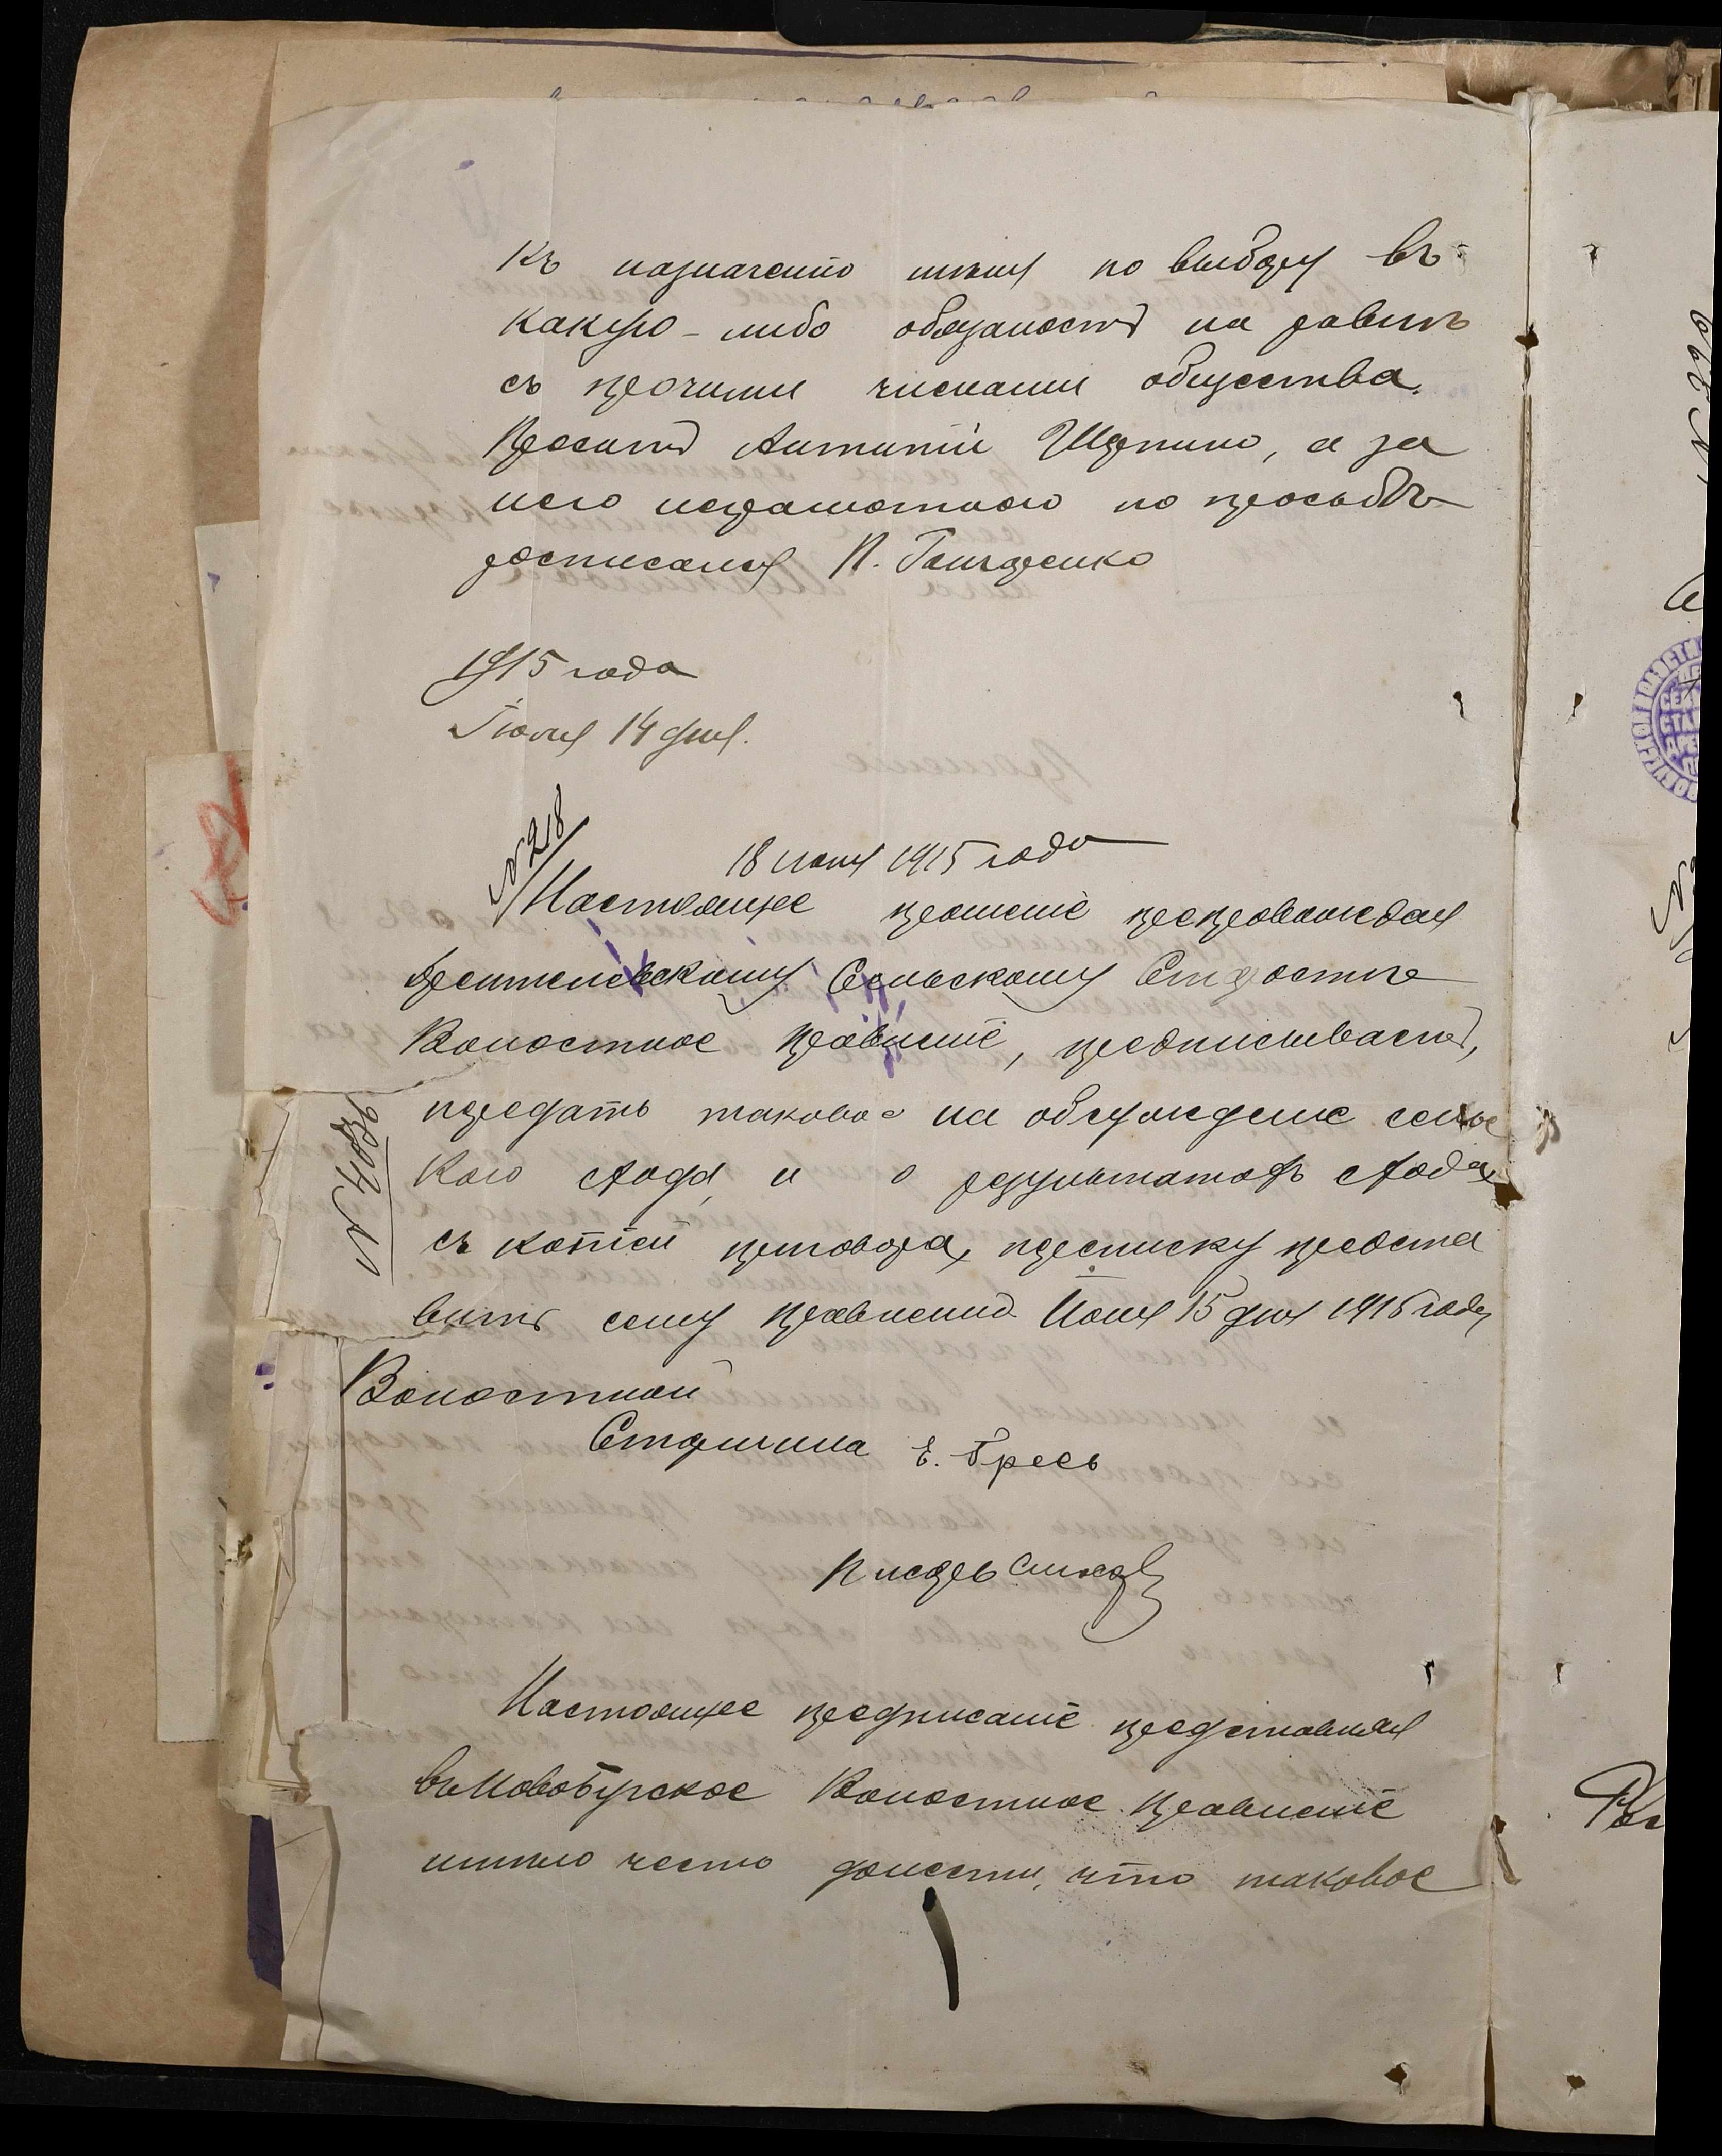 къ назначенію по выбору въ
какую-либо обязаность на равнѣ
съ прочими членами общества.
Проситъ Антипій а за
него неграмотного по просьбѣ
росписался П. Гончаренко
1915 года
Іюля 14 дня.
N 218
18 Іюля 1915 года
Настоящее прошеніе препровождая
Сельскому Старостѣ
Волостное правленіе, предписываетъ,
N 4036
передать таковое на обсужденіе сельс
кого схода, и о результатахъ схода,
съ копіей приговора, переписку предста
вить сему правленію Іюля 15 дня 1915 года,
Волостной
Старшина Е. Гресь
Писарь
Настоящее предписаніе представляя
въ Новобугское Волостное Правленіе
имѣю честь донести, что таковое